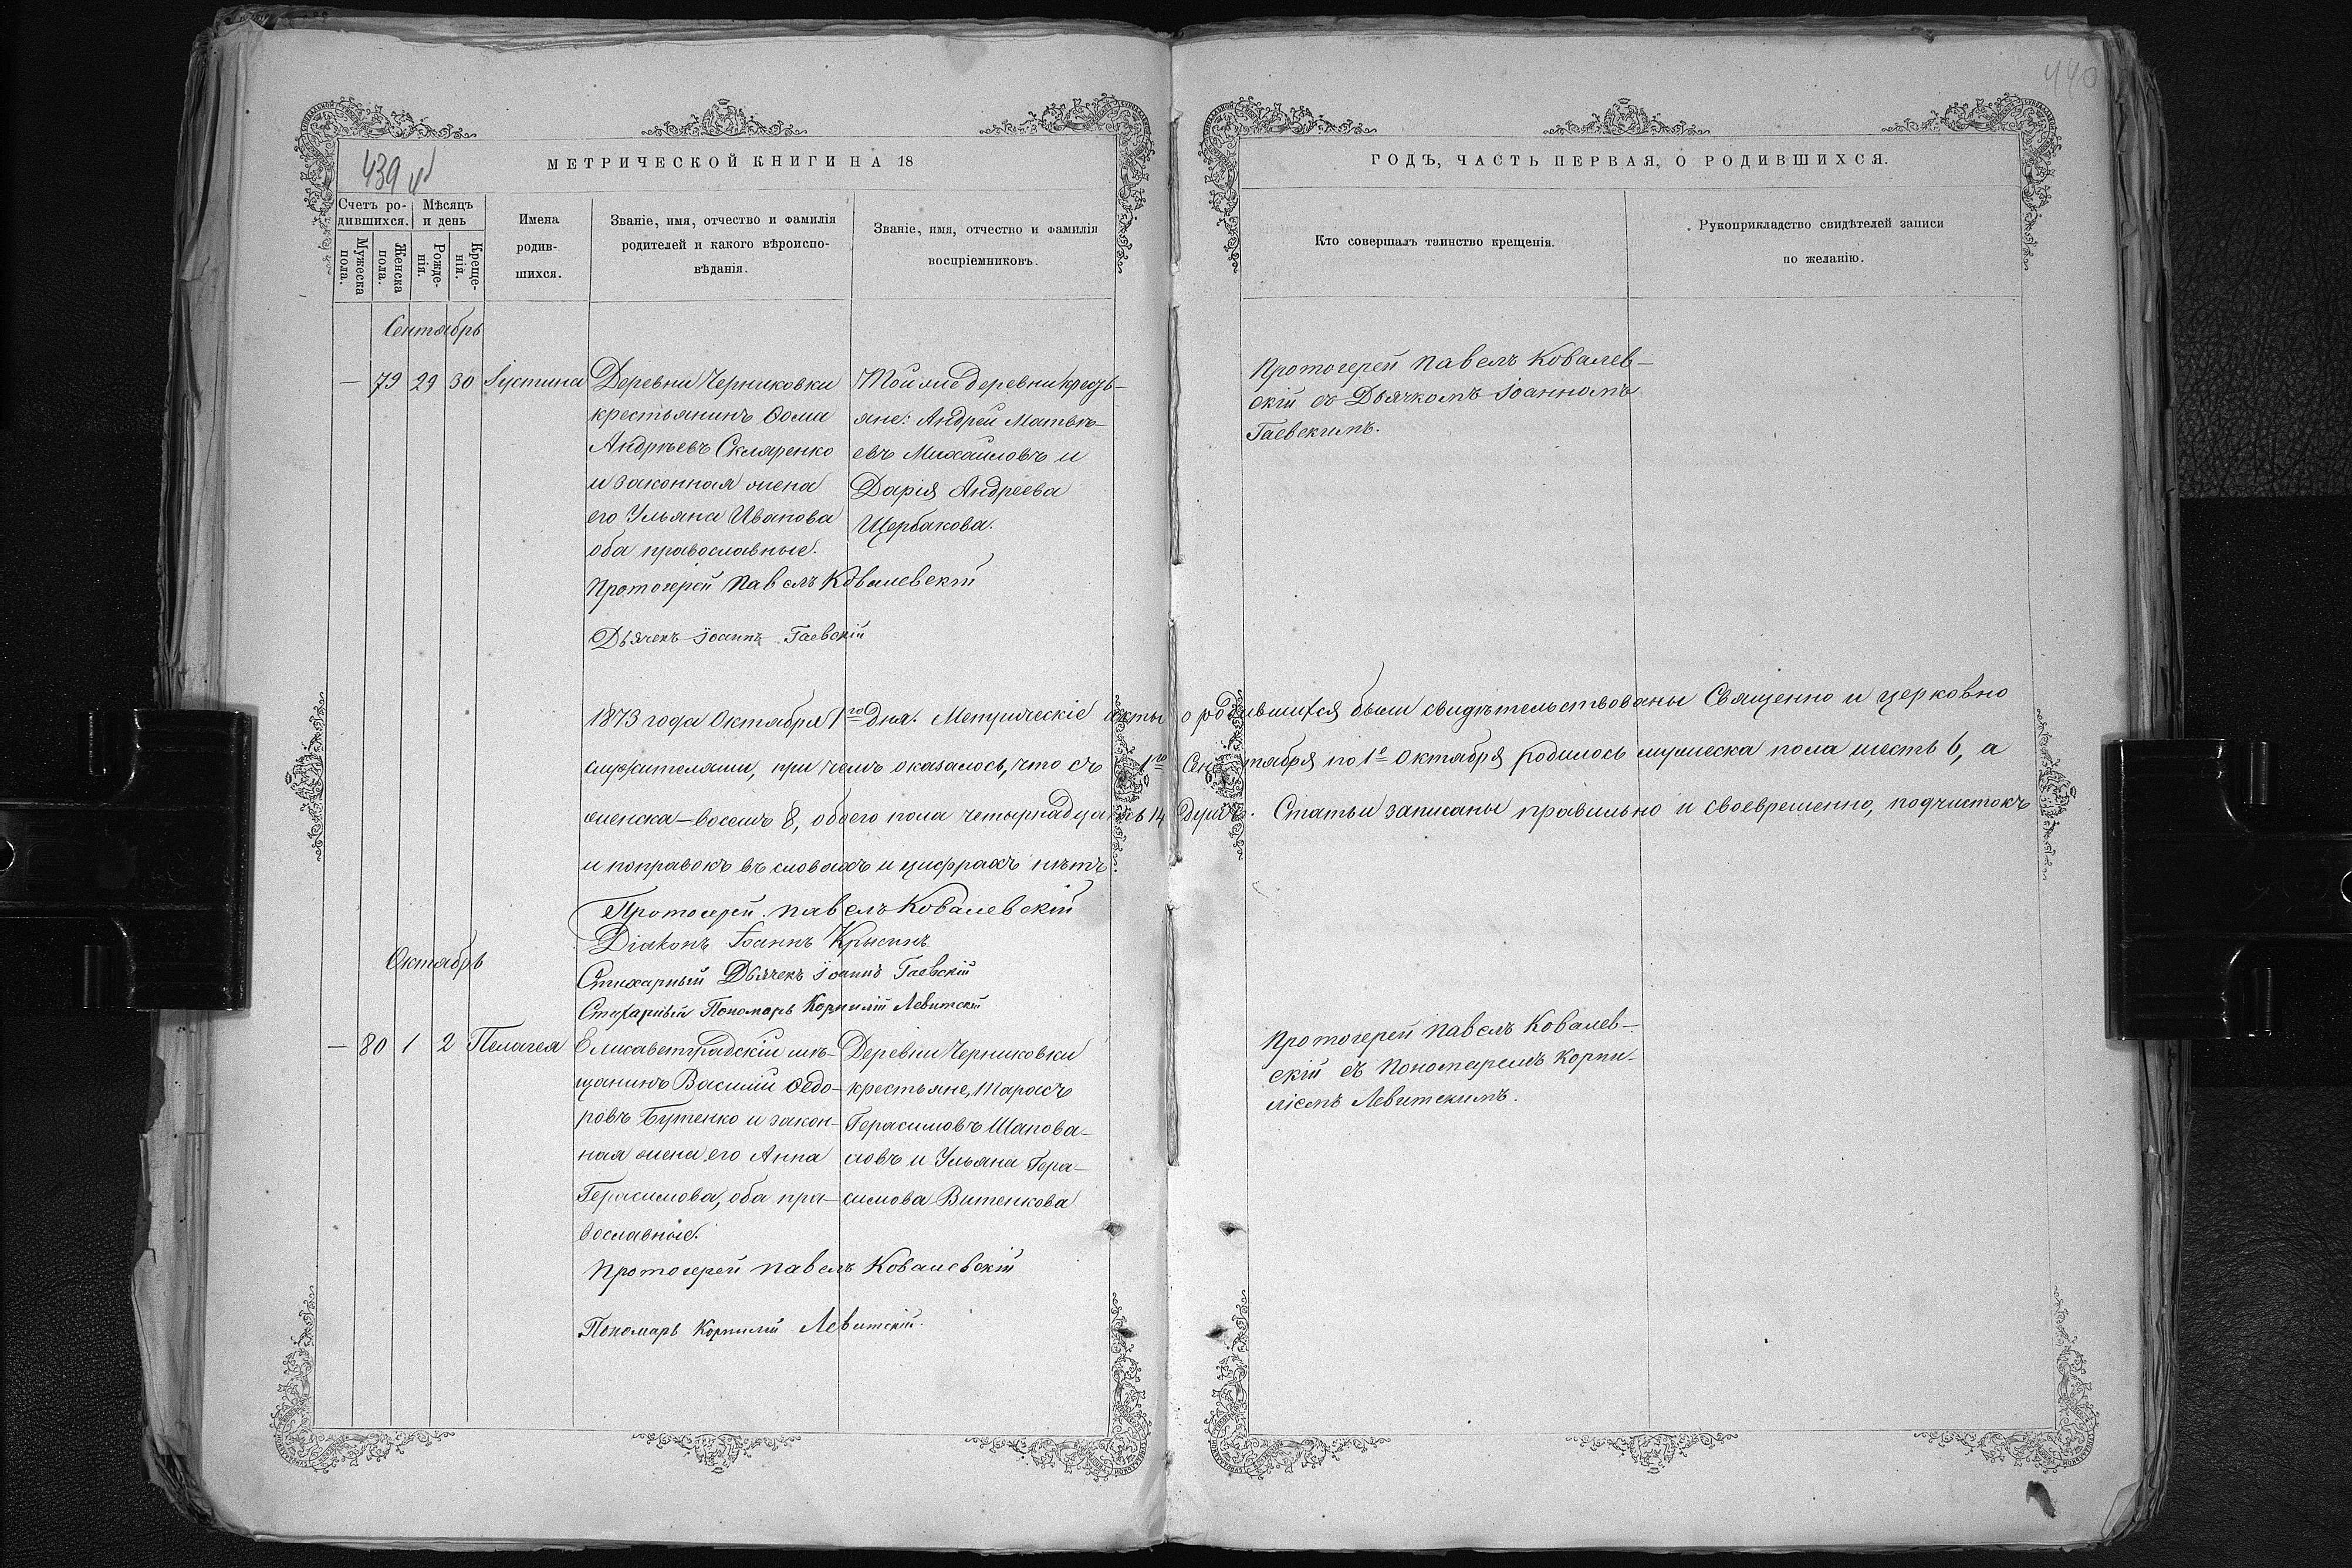 440
439
МЕТРИЧЕСКОЙ КНИГИ НА 18
ГОДЪ, ЧАСТЬ ПЕРВАЯ, О РОДИВШИХСЯ.
Счетъ ро-
дившихся.
Мужеска
пола.
Женска
пола.
Мѣсяцъ
и день
Рожде-
нія.
Креще-
нія.
Имена
родив-
шихся.
Званіе, имя, отчество и фамилія
родителей и какого вѣроиспо-
вѣданія.
Званіе, имя, отчество и фамилія
воспріемниковъ.
Кто совершалъ таинство крещенія.
Рукоприкладство свидѣтелей записи
по желанію.
Сентябрь
— 79 29 30 Іустина
Деревни Черниковки
крестьянинъ Ѳома
Андреевъ Скляренко
и законная жена
его Ульяна Иванова
оба православные.
Тойже деревни кресть-
яне: Андрей Матвѣ-
евъ Михайловъ и
Дарія Андреева
Щербакова.
Протоіерей Павелъ Ковалев-
скій съ Дьячкомъ Іоанномъ
Гаевскимъ.
Протоіерей Павелъ Ковалевскій
Дьячекъ Іоаннъ Гаевскій
1873 года Октября 1го дня. Метрическіе акты о родившихся были свидѣтельствованы Священно и церковно
служителями, при чемъ оказалось, что съ 1го Сентября по 1е Октября родилось мужеска пола шесть 6, а
женска—восемь 8, обоего пола четырнадцать 14 душъ. Статьи записаны правильно и своевременно, подчистокъ
и поправокъ въ словахъ и цифрахъ нѣтъ.
Протоіерей Павелъ Ковалевскій
Діаконъ Іоаннъ Крысинъ
Стихарный Дьячекъ Іоаннъ Гаевскій
Стихарный Пономарь Корнилій Левитскій
Октябрь
— 80 1 2 Пелагея
Елисаветградскій мѣ-
щанинъ Василій Ѳедо-
ровъ Бутенко и закон-
ная жена его Анна
Герасимова, оба пра-
вославные.
Деревни Черниковки
крестьяне, Тарасъ
Герасимовъ Шапова-
ловъ и Ульяна Гера-
симова Витенкова
Протоіерей Павелъ Ковалев-
скій съ Пономаремъ Корни-
ліемъ Левитскимъ.
Протоіерей Павелъ Ковалевскій
Пономарь Корнилій Левитскій.